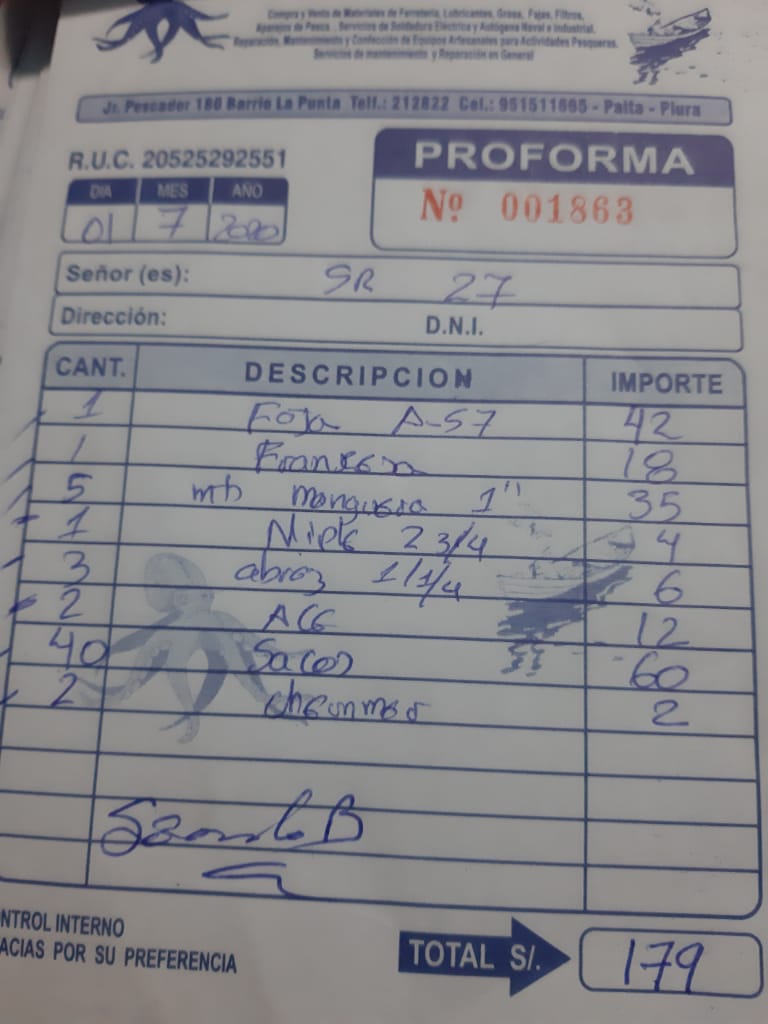 Compra y Venta de Materiales de Ferretería, Lubricantes, Grasa, Fajas, Filtros,
Aparejos de Pesca.. Servicios de Soldadura Electrica y Autógena Naval e Industrial.
Reparación, Mantenimiento y Confección de Equipos Artesanales para Actividades Pesqueras.
Servicios de mantenimiento y Reparación en General
Jr. Pescador 180 Barrio La Punta Telf.: 212822 Cel.: 951511695 - Paita - Piura
R.U.C. 20525292551
PROFORMA
Nº 001863
DIA MES AÑO
01 7 2020
Señor (es): SR 27
Dirección: D.N.I.
CANT. DESCRIPCION IMPORTE
1 Foja A-57 42
1 18
5 mt manguera 1" 35
1 Niple 2 3/4 4
3 abraz 1 1/4 6
2 12
40 Sacos 60
2 2
CONTROL INTERNO
GRACIAS POR SU PREFERENCIA
TOTAL S/. 179